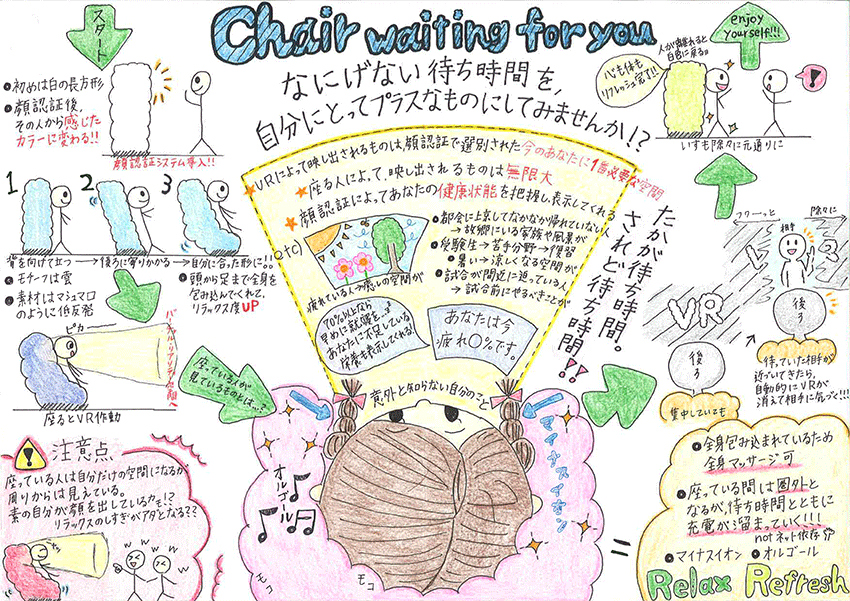 Chair waiting for you
なにげない待ち時間を、
自分にとってプラスなものにしてみませんか!?
スタート
初めは白の長方形
顔認証後、
その人から感じた
カラーに変わる!!
顔認証システム導入!!
1
2
3
背を向けて立つ → 後ろに寄りかかる → 自分に合った形に!!
モチーフは雲
素材はマシュマロ
のように低反発
頭から足まで全身を
包み込んでくれて、
リラックス度UP
ピカー
バーチャルリアリティー空間へ
座るとVR作動
座っている人が
見ているものとは…?
注意点
座っている人は自分だけの空間になるが、
周りからは見えている。
素の自分が顔を出しているカモ!?
リラックスのしすぎがアダとなる??
w w w w
★VRによって映し出されるものは、顔認証で選別された今のあなたに1番必要な空間
★座る人によって、映し出されるものは無限大
★顔認証によってあなたの健康状態を把握し、表示してくれる
etc)
疲れている人→癒しの空間が
都会に上京してなかなか帰れていない人
→故郷にいる家族や風景が
受験生→苦手分野の復習
暑い→涼しくなる空間が
試合が間近に迫っている人
→試合前にやるべきことが
70%以上なら
早めに就寝を…
あなたに不足している
栄養も表示してくれる!
あなたは今
疲れ〇%です。
意外と知らない自分のこと
オルゴール
マイナスイオン
モコ
モコ
たかが待ち時間。
されど待ち時間!!
enjoy
yourself!!!
人が離れると
白色に戻る
心も体も
リフレッシュ完了!!
!
いすも徐々に元通りに
フワーッと
徐々に
相手
V R
VR
後
3
後
3
集中していても
待っていた相手が
近づいてきたら、
自動的にVRが
消えて相手に気づく!!!
全身包み込まれているため
全身マッサージ可
座っている間は圏外と
なるが、待ち時間とともに
充電が溜まっていく!!!
not ネット依存
マイナスイオン オルゴール
=
Relax Refresh